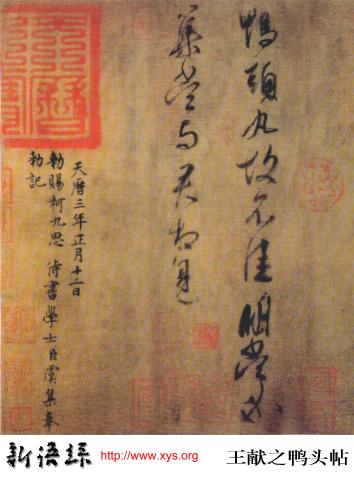 鴨頭丸故不佳明當必
集當与君相見
天曆三年正月十二日
勅賜柯九思 侍書學士臣虞集奉
勅記
新語絲
http://www.xys.org
王献之鸭头帖